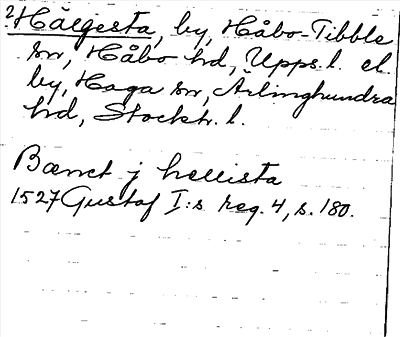 ? Hälgesta, by, Håbo-Tibble
sn, Håbo hd, Upps. l. el.
by, Haga sn, Ärlinghundra
hd, Stockh. l.
Bænct j hellista
1527 Gustaf I:s reg. 4, s. 180.